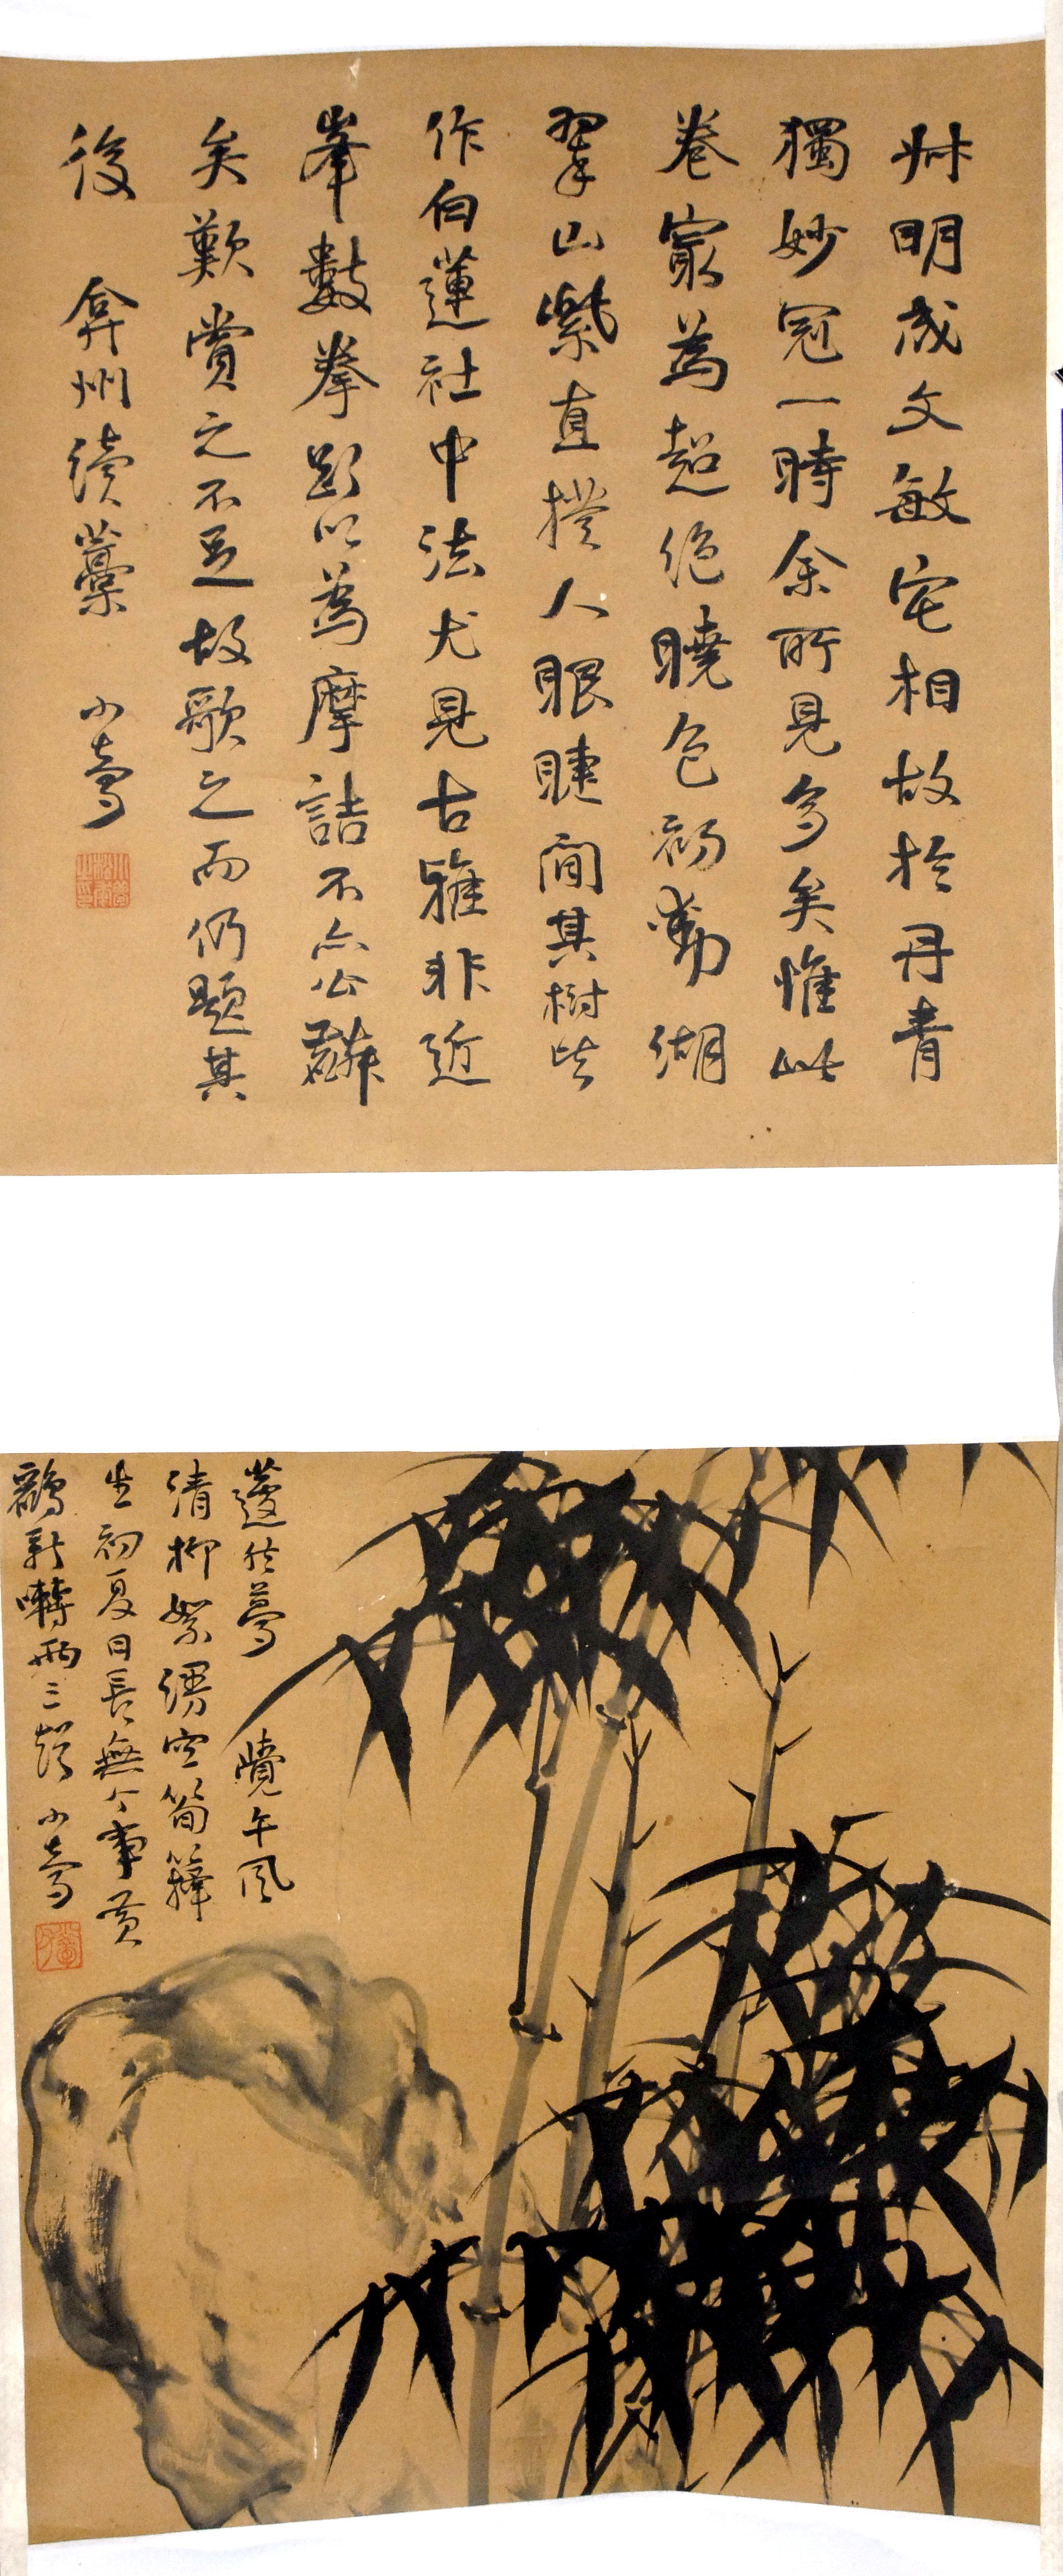 叔明成文敏宅相故於丹青
獨妙冠一時余所見多矣惟此
卷最為超絕曉色初動湖
翠山紫直撲人眼睫間其樹皆
作白蓮社中法尤見古雅非近
峯數拳斷以為摩詰不亦公麟
矣歎賞之不足故歌之而仍題其
後 弇州續藁 小
蘧然夢 覺午風
清柳絮空筍籜
生初夏日長無个事黃
鸝新囀兩三聲 小